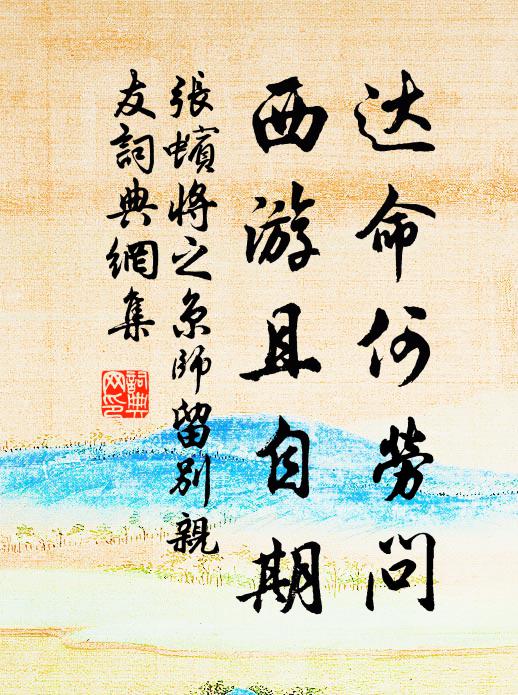 达命何劳问
西游且自期
張蠙將之京師留別親
友詞典網集
詞典
网印